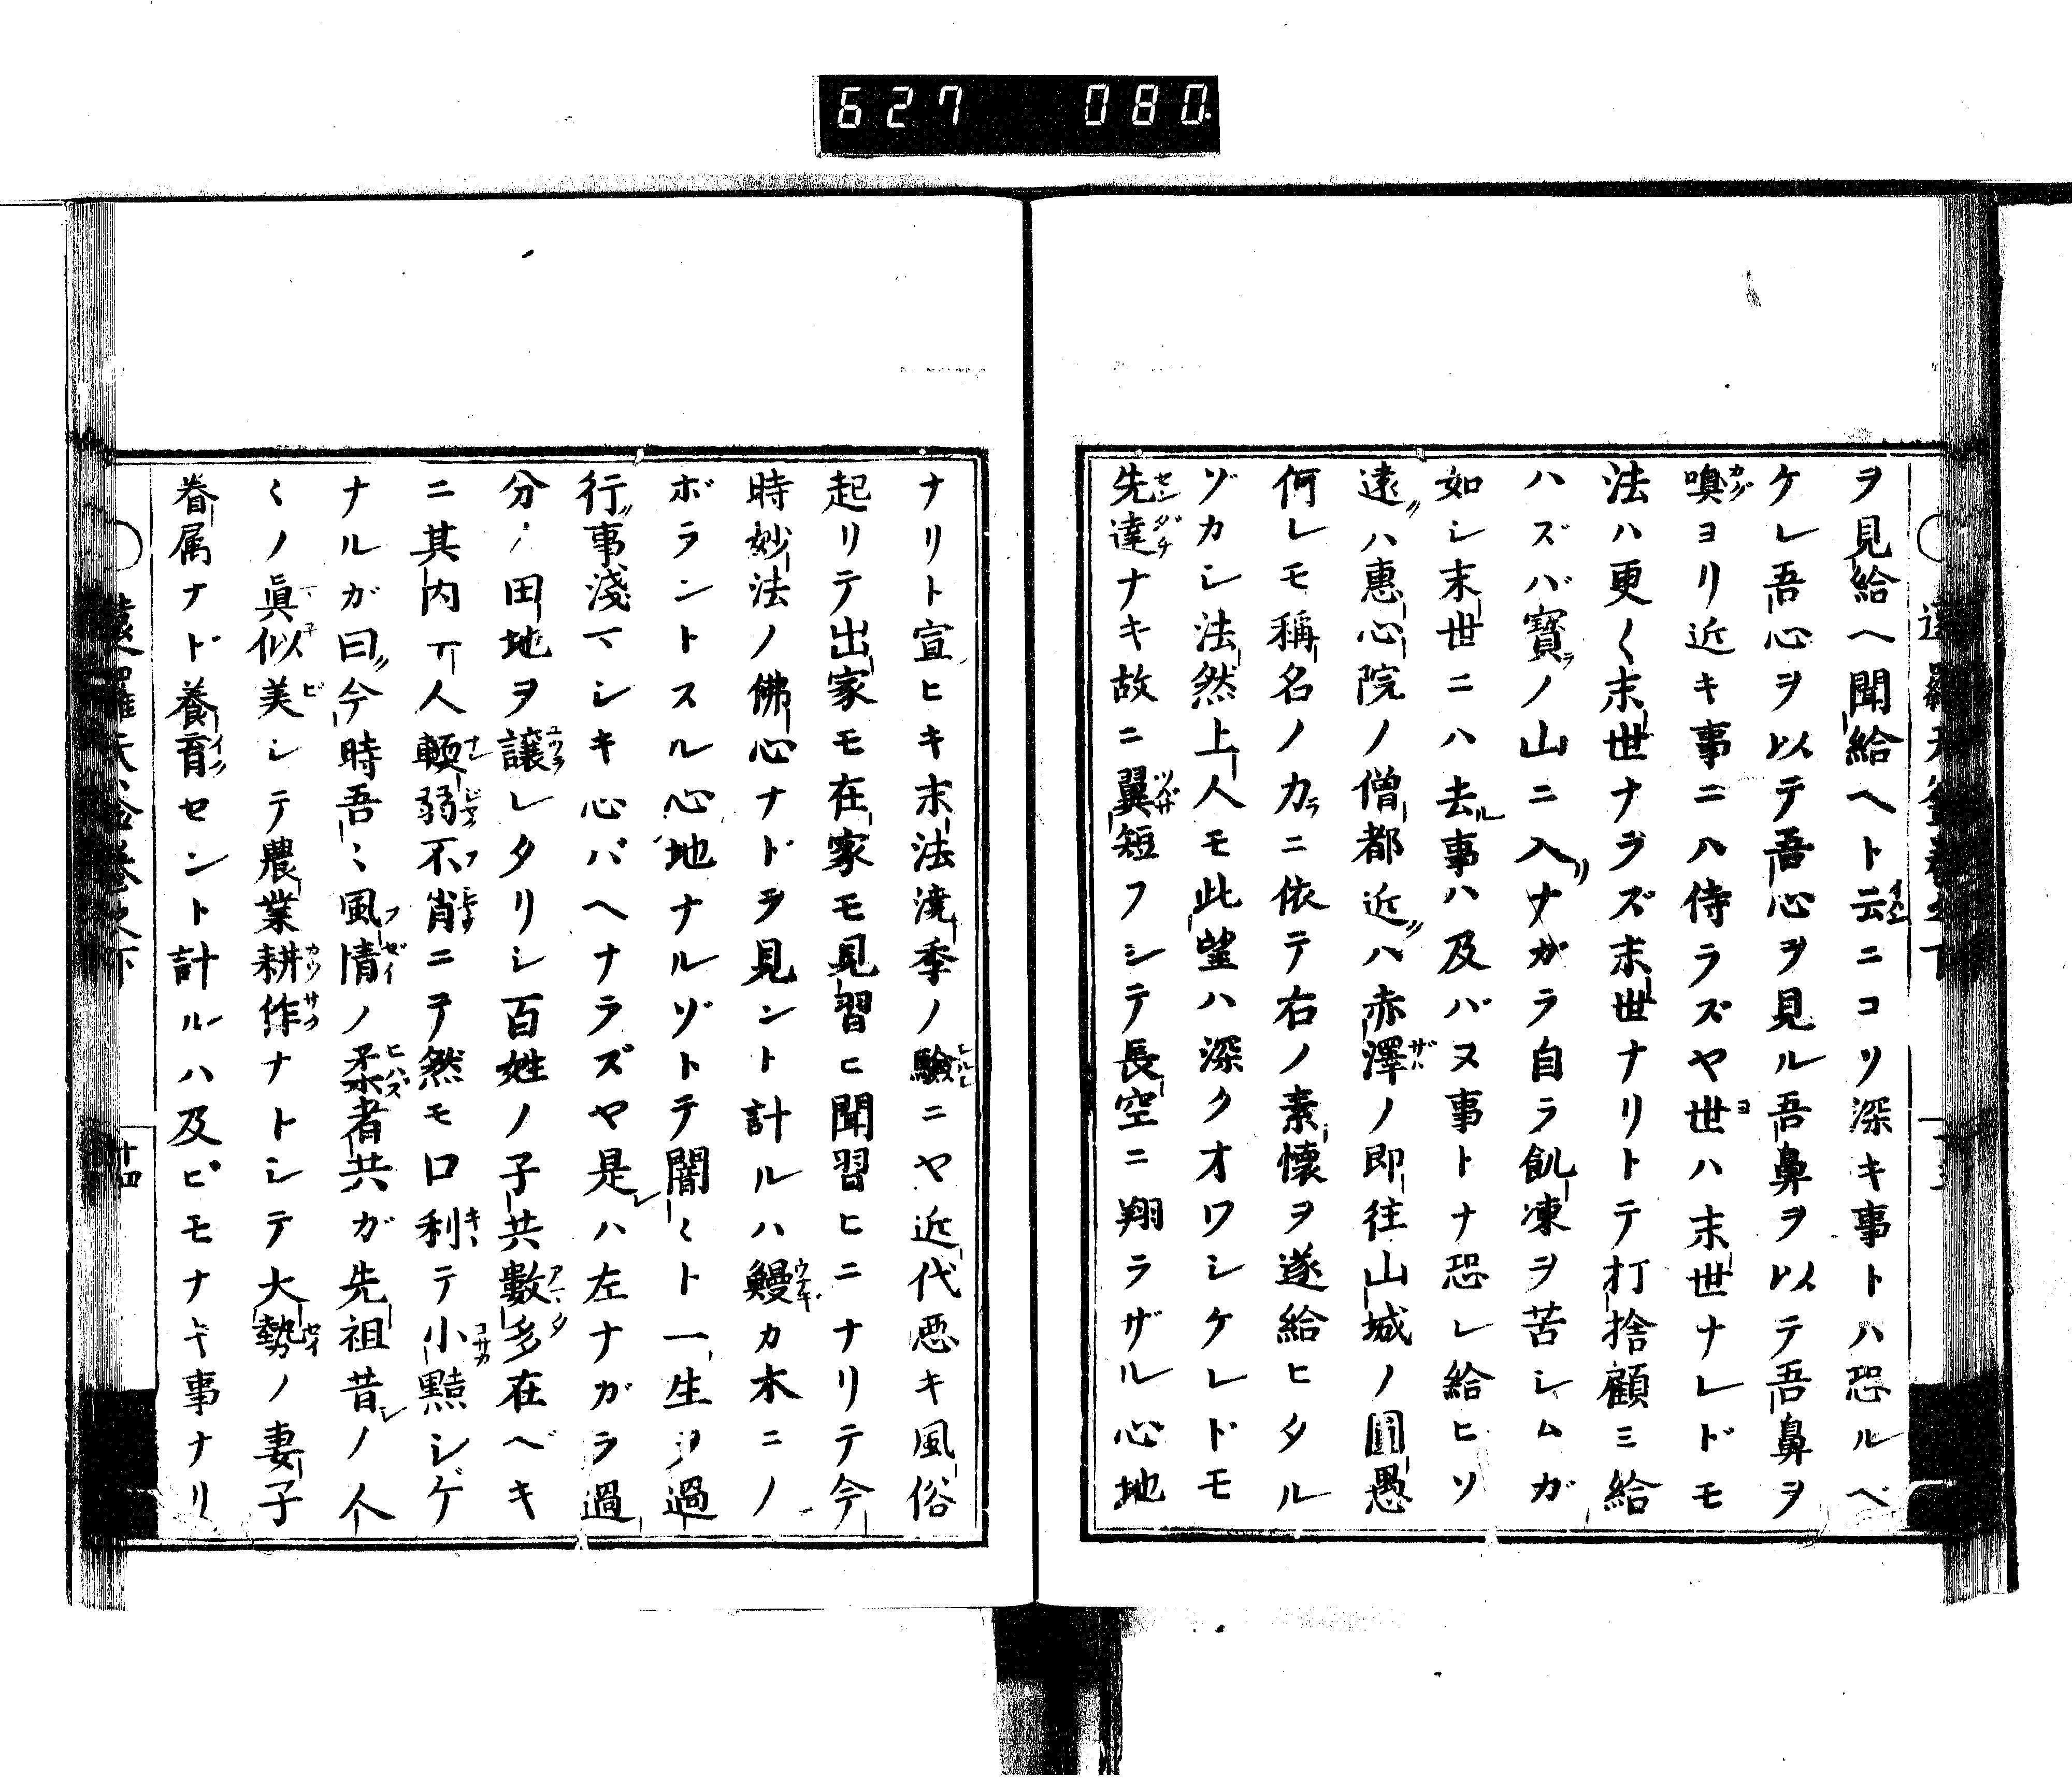 627 080
ヲ見給ヘ聞給ヘト云ニコソ深キ事トハ恐ルベ
ケレ吾心ヲ以テ吾心ヲ見ル吾鼻ヲ以テ吾鼻ヲ
嗅ヨリ近キ事ニハ侍ラズヤ世ハ末世ナレドモ
法ハ更〱末世ナラズ末世ナリトテ打捨顧ミ給
ハズバ寳ノ山ニ入ナガラ自ラ飢凍ヲ苦シムガ
如シ末世ニハ去事ハ及バヌ事トナ恐レ給ヒソ
遠ハ惠心院ノ僧都近ハ赤澤ノ即往山城ノ圓愚
何レモ稱名ノカニ依テ右ノ素懷ヲ遂給ヒタル
ゾカシ法然上人モ此望ハ深クオワシケレドモ
先達ナキ故ニ翼短フシテ長空ニ翔ラザル心地
ナリト宣ヒキ末法澆季ノ驗ニヤ近代惡キ風俗
起リテ出家モ在家モ見習ヒ聞習ヒニナリテ今
時妙法ノ佛心ナドヲ見ント計ルハ鰻カ木ニノ
ボラントスル心地ナルゾトテ闇〻ト一生ヲ過
行事淺マシキ心バヘナラズヤ是ハ左ナガラ過
分ノ田地ヲ讓レタリシ百姓ノ子共數多在ベキ
ニ其内一人輭弱不肖ニテ然モ口利テ小黠シゲ
ナルガ曰今時吾〻風情ノ柔者共ガ先祖昔ノ人
〱ノ眞似美シテ農業耕作ナトシテ大勢ノ妻子
眷属ナド養育セント計ルハ及ビモナキ事ナリ
十四